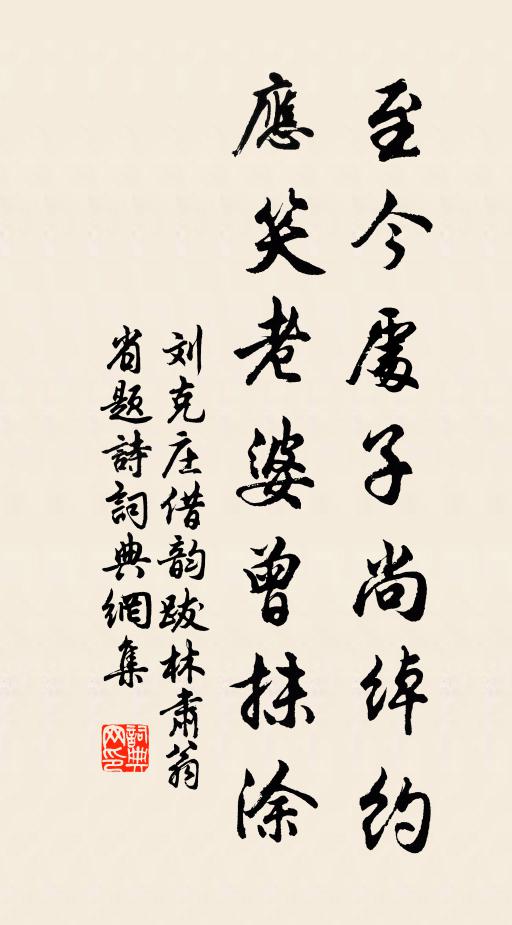 至今處子尚綽約
應笑老婆曾抹涂
刘克庄借韵跋林肃翁
省题詩詞典網集
詞典网印